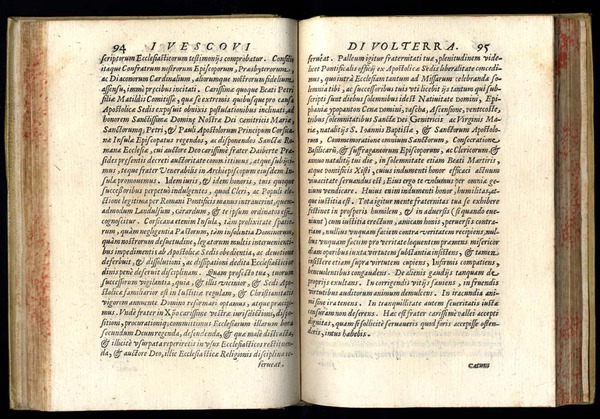 94 I VESCOVI
scriptorum Ecclesiasticorum testimonijs comprobatur. Consilio
itaque Confratrum nostrorum Episcoporum, Præsbyterorum,
ac Diaconorum Cardinalium, aliorumque nostrorum fidelium,
assensu, immò precibus incitati. Carissimæ quoque Beati Petri
filiæ Matildis Comitissæ, quæ se extremis quibusque pro causa
Apostolicæ Sedis exposuit obnixis postulationibus inclinati, ad
honorem Sanctissimæ Dominæ Nostræ Dei Genitricis Mariæ,
Sanctorumq; Petri, & Pauli Apostolorum Principum Corsica-
næ Insulæ Episcopatus regendos, ac disponendos Sanctæ Ro-
manæ Ecclesiæ, cui auctore Deo carissime frater Daiberte Præ-
sides præsentis decreti auctoritate committimus, atque subijci-
mus, teque frater Venerabilis in Archiepiscopum eiusdem In-
sulæ promouemus. Idem iuris, & idem honoris, tuis quoque
successoribus perpetuò indulgentes, quod Cleri, ac Populi ele-
ctione legitima per Romani Pontificis manus intrauerint, quem-
admodum Landulfum, Girardum, & te ipsum ordinatos esse
cognoscitur. Corsicana etenim Insula, tàm prolixitate spatio-
rum, quàm negligentia Pactorum, tàm insolentia Dominorum,
quàm nostrorum desuetudine, legatorum multis interuenienti-
bus impedimentis ab huius Apostolicæ Sedis obedientia, ac deuotione
deferbuit, & dissolutioni, ac dissipationi dedita Ecclesiasticæ or-
dinis penè deseruit disciplinam. Quam profectò tua, tuorum
successorum vigilantia, quia, & illis vicinior, & Sedi Apo-
stolicæ familiarior est in Iustitiæ regulam, & Christianitatis
vigorem annuente Domino reformari optamus, atque præcipi-
mus. Vnde frater in Xpo carissime vestræ iurisdictioni, dispo-
sitioni, procurationiq; committimus Ecclesiarum illarum bona
secundum Deum regenda, defendenda, & quæ malè distracta,
& illicitè vsurpata repereritis in vsus Ecclesiasticos restituen-
da, & auctore Deo, illic Ecclesiasticæ Religionis disciplina re-
ferueat.
DI VOLTERRA. 95
ferueat. Palleum igitur fraternitati tuæ, plenitudinem vide-
licet Pontificalis officij ex Apostolicæ Sedis liberalitate concedi-
mus, quo intrà Ecclesiam tantum ad Missarum celebranda so-
lemnia tibi, ac successoribus tuis vti liceat ijs tantum qui sub-
scripti sunt diebus solemnibus idest Natiuitate Domini, Epi-
phania, ypapanton, Cena domini, pascha, Ascensione, pentecoste,
tribus solemnitatibus Sanctæ Dei Genitricis ac Virginis Ma-
riæ, natalitijs S. Ioannis Baptistæ, & Sanctorum Apostolo-
rum, Commemoratione omnium Sanctorum, Consecratione
Basilicarũ, & suffraganeorum Episcoporum, ac Clericorum &
annuo natalitij tui die, in solemnitate etiam Beati Martiris,
atque pontificis Xisti, cuius indumenti honor efficaci actuum
viuacitate seruandus est; Eius ergo te volumus per omnia ge-
nium vendicare. Huius enim indumenti honor, humilitas, at-
que iustitia est. Tota igitur mente fraternitas tua se exhibere
festinet in prosperis humilem, & in aduersis (si quando eue-
niunt) cum iustitia erectam, amicum bonis, peruersis contra-
rium, nullius vnquam faciem contra veritatem recipiens, nul-
lius vnquam faciem pro veritate loquentem præmens misericor-
diæ operibus iuxta virtutem substantiæ insistens, & tamen in-
sistere etiam supra virtutem cupiens, Infirmis compatiens,
beneuolentibus congaudens. De alienis gaudijs tanquam de
proprijs exultans. In corrigendis vitijs sæuiens, in fouendis
virtutibus auditorum animum demulcens. In iracundia ani-
mi sine ira tenens. In tranquillitate autem seueritatis iustæ
censuram non deserens. Hæc est frater carissimè pallei accepti
dignitas, quam si sollicitè seruaueris quod foris accepisse osten-
deris, intus habebis.